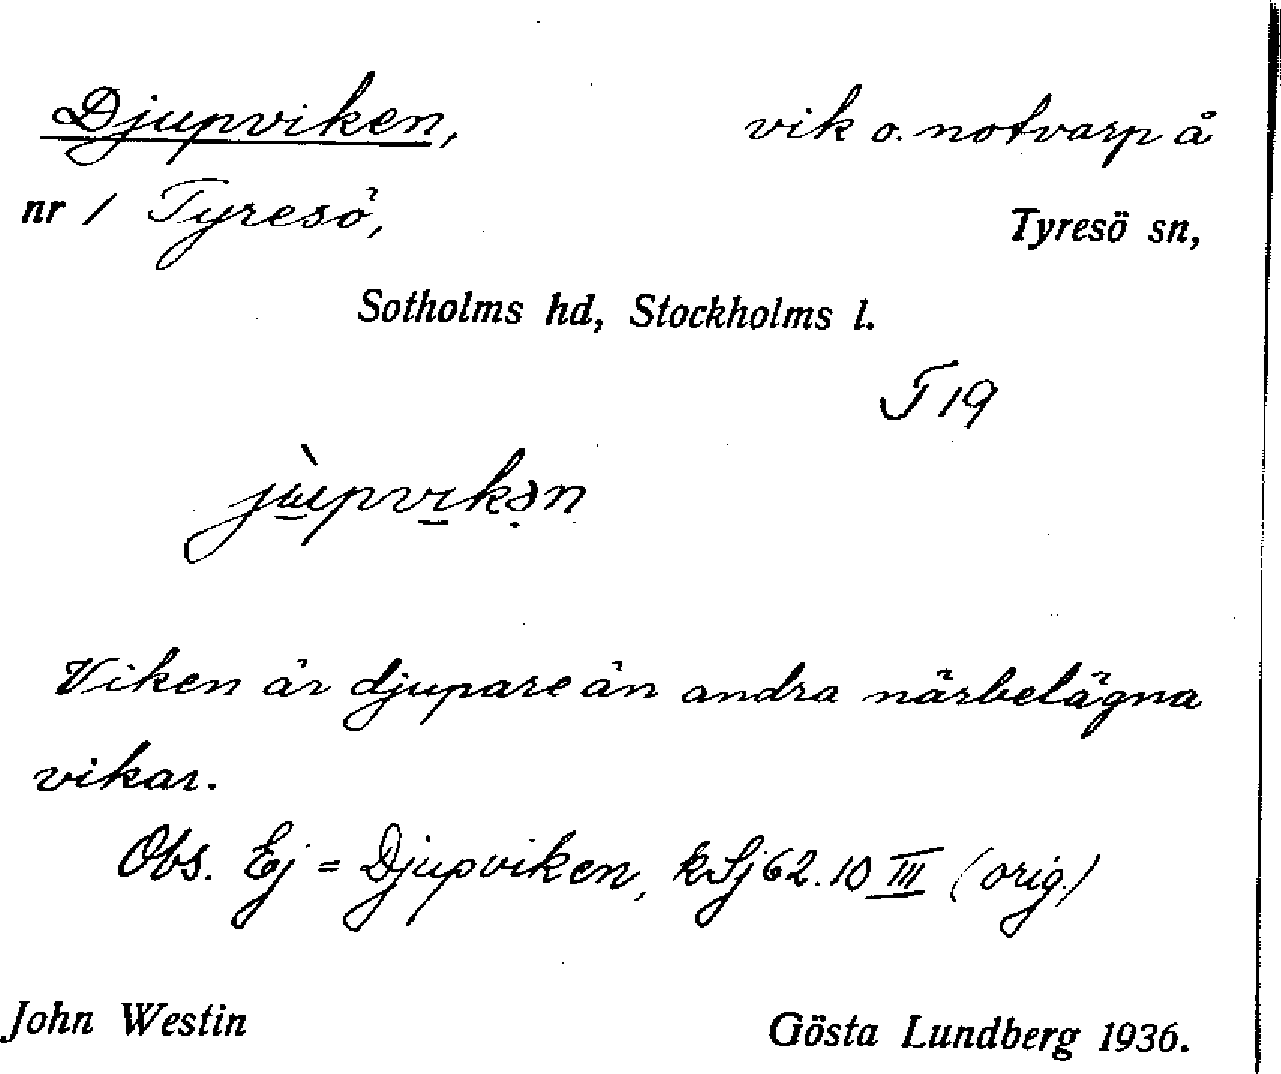 Djupviken, vik o. notvarp å
nr 1 Tyresö, Tyresö sn,
Sotholms hd, Stockholms l.
T 19
jùpvikən
Viken är djupare än andra närbelägna
vikar.
Obs. Ej = Djupviken, kSj 62.10 III (orig.)
John Westin Gösta Lundberg 1936.